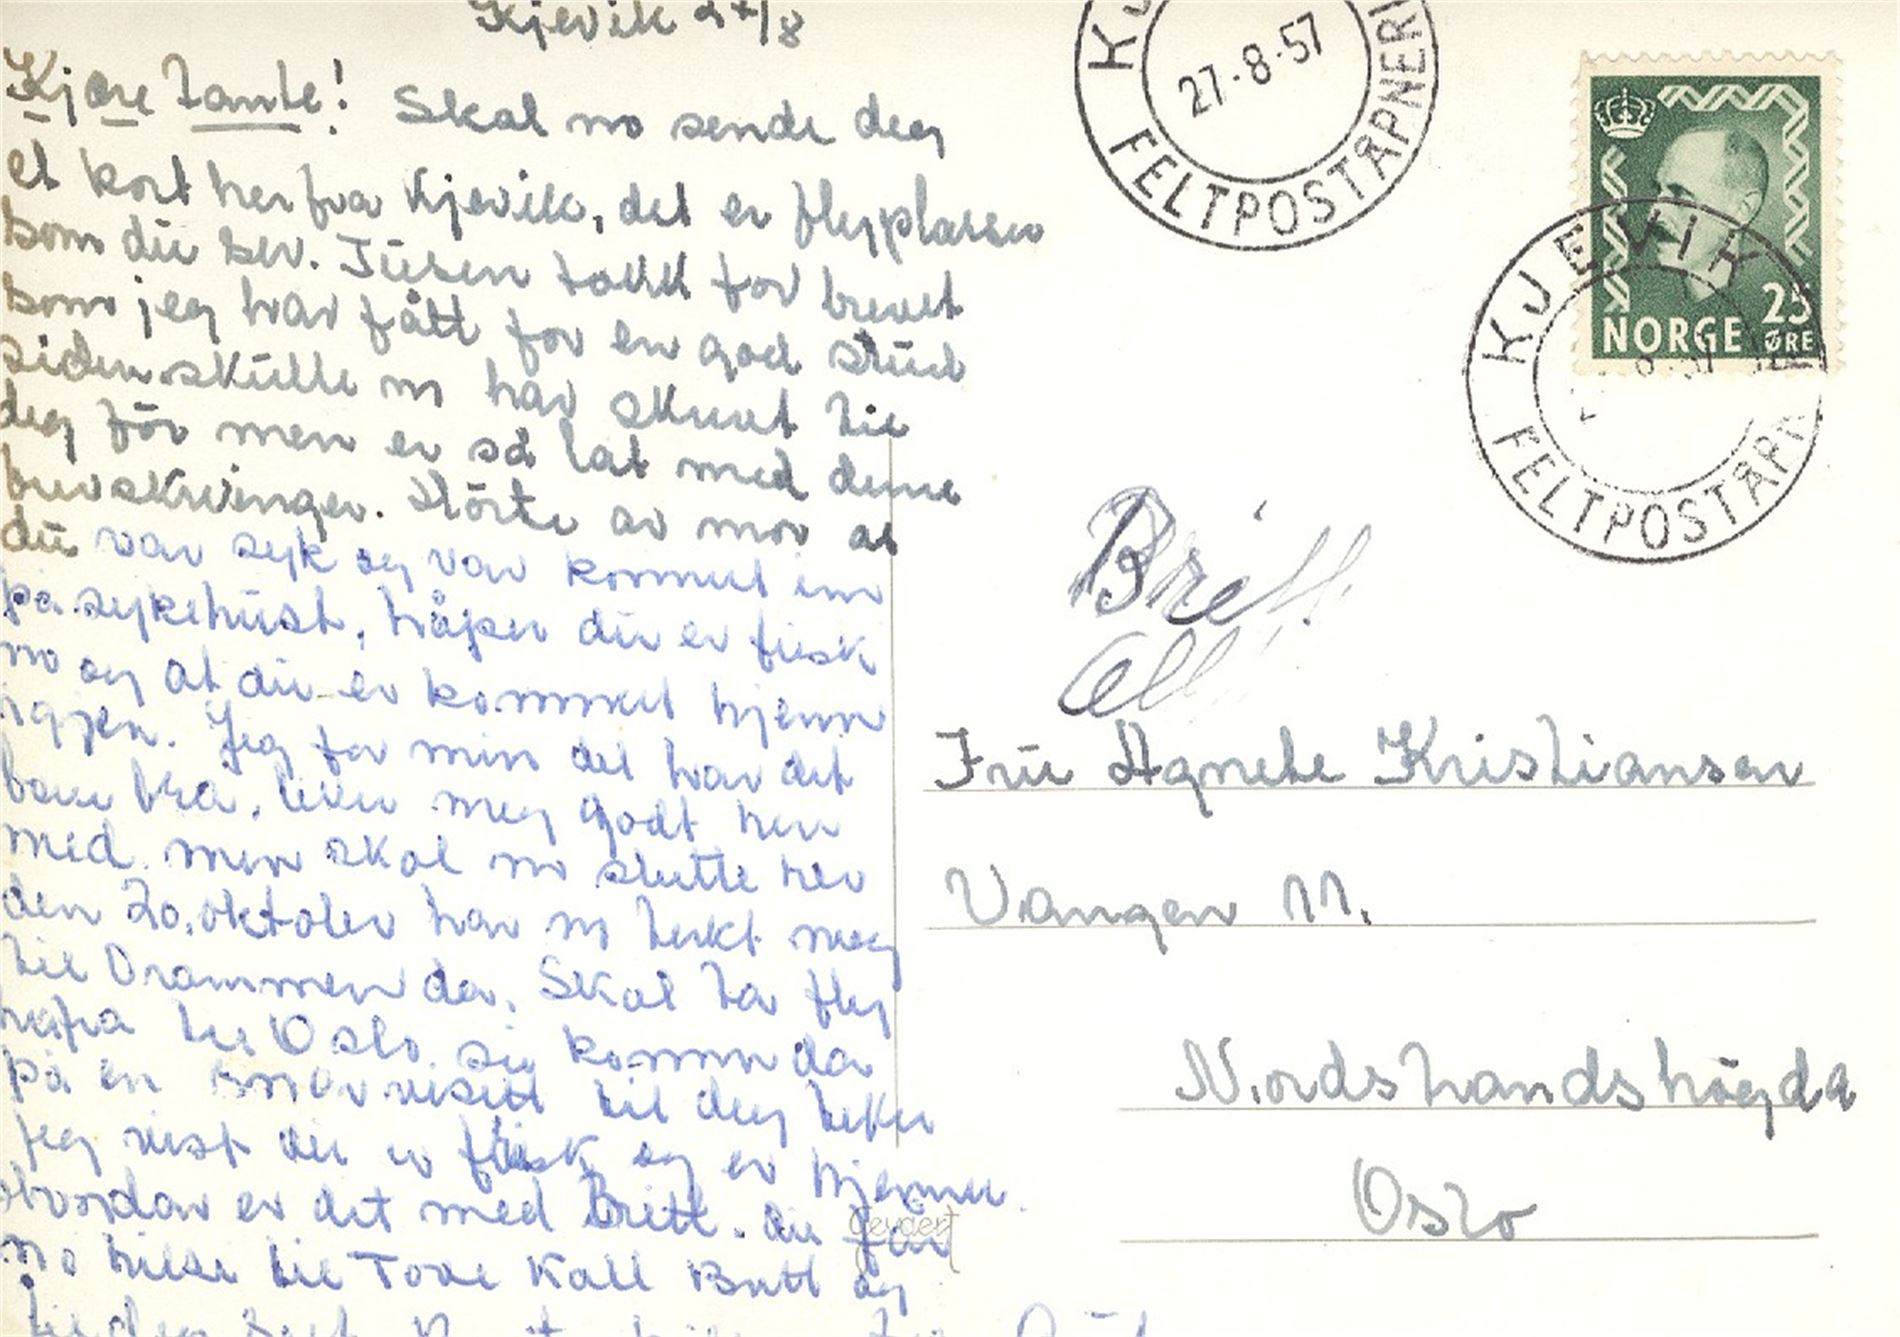 Kjevik 27/8
Kjære Tante! Skal no sende deg
et kort her fra Kjevik, det er flyplassen
som du ser. Tusen takk for brevet
som jeg har fått for en god stund
siden skulle no har skrevet til
deg før men er så lat med denne
brevskrivingen. Hörte av mor at
du var syk og var kommet inn
på sykehust, håper du er frisk
no og at du er kommet hjem
iggjen. Jeg for min del har det
bare bra. lever meg godt her
med. men skal no slutte her
den 20. oktober har no tenkt meg
til Drammen da. Skal ta fly
herfra til Oslo. sig kommer da
på en snar visitt til deg
jeg vist du er frisk og er hjemme.
Hvordan er det med Britt. du får
no hilse til Tove Kall Britt og
KJEVIK
27-8-57
FELTPOSTÅPNERI
NORGE 25 ØRE
KJEVIK
FELTPOSTÅPN
Britt
Fru Agnete Kristiansen
Vangen 11.
Nordstrandshögda
Oslo
Gevaert